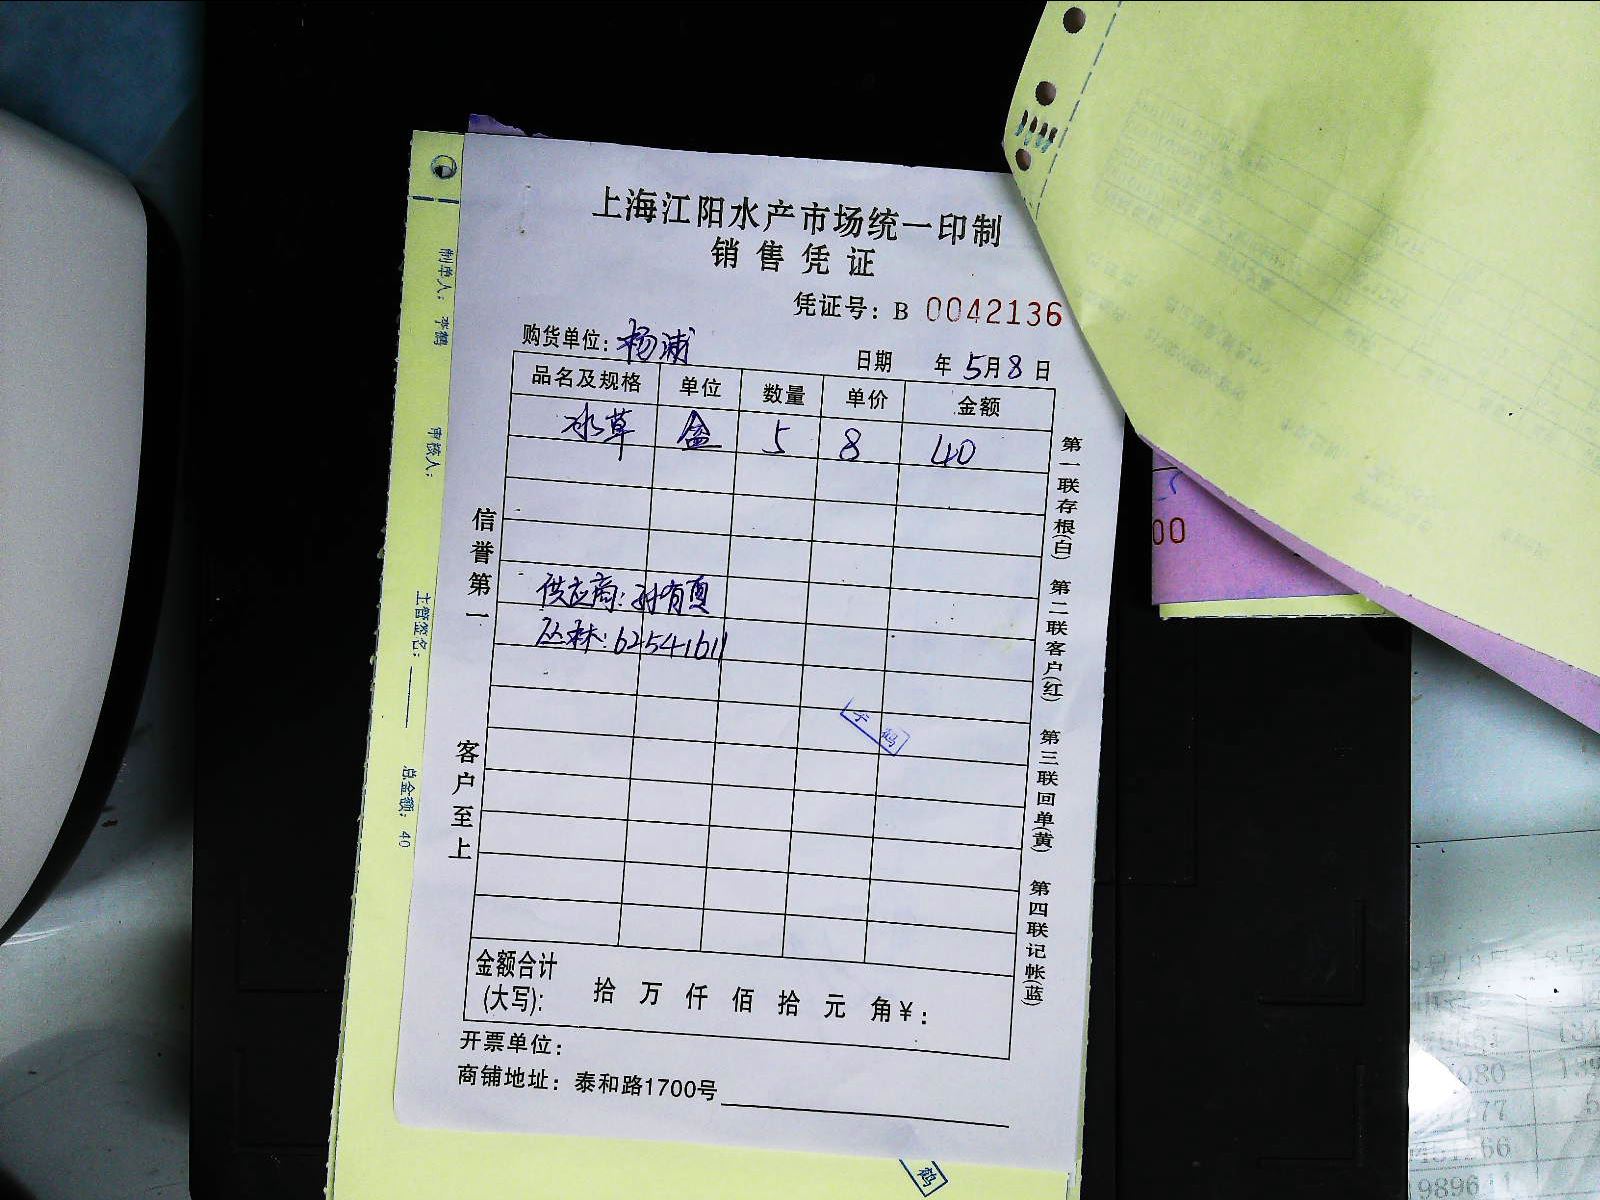 上海江阳水产市场统一印制
销售凭证
凭证号：B 0042136
购货单位：杨浦 日期 年5月8日
品名及规格 单位 数量 单价 金额
水草 盒 5 8 40
供应商：孙有
丛林：62541611
信誉第一
客户至上
第一联存根(白) 第二联客户(红) 第三联回单(黄) 第四联记帐(蓝)
金额合计
(大写)： 拾 万 仟 佰 拾 元 角￥：
开票单位：
商铺地址：泰和路1700号
制单人： 李鹤
审核人：
主管签名：
总金额：40
鹤
00